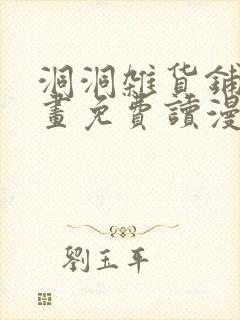 洞洞雜貨鋪
畫免費讀漫
劉玉平